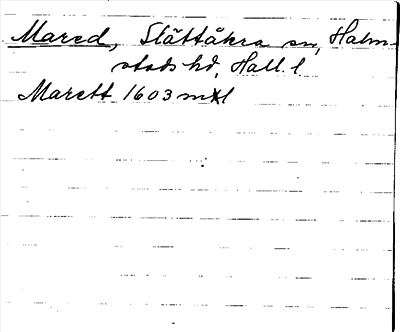 Mared, Slättåkra sn, Halm-
stads hd, Hall. l.
Marett 1603 mtl